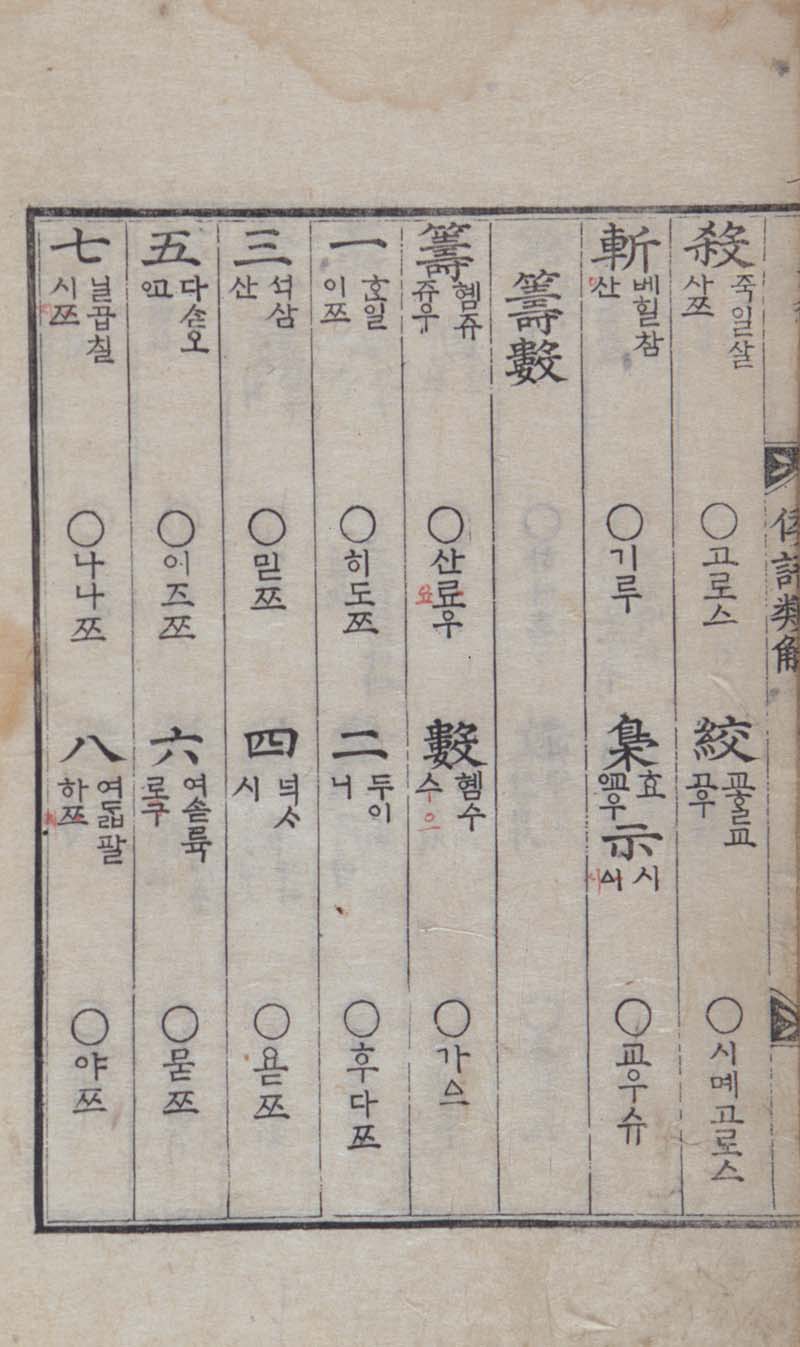 倭語類解
殺 죽일살 사쯔 ○고로스 絞 교ᄒᆞᆯ교 고우 ○시몌고로스
斬 베힐참 산 ○기루 梟 효 ᅂᅭ우 示 시 ○교우슈
籌數
籌 혬쥬 쥬우 ○산료우 數 혬수 수 으 ○가ᅀᅳ
一 ᄒᆞᆫ일 이쯔 ○히도쯔 二 두이 니 ○후다쯔
三 석삼 산 ○믿쯔 四 넉ᄉᆞ 시 ○욛쯔
五 다ᄉᆞᆺ오 ᅂᅩ ○이즈쯔 六 여ᄉᆞᆺ륙 로구 ○묻쯔
七 닐곱칠 시쯔 ○나나쯔 八 여ᄃᆞᆲ팔 하쯔 ○야쯔